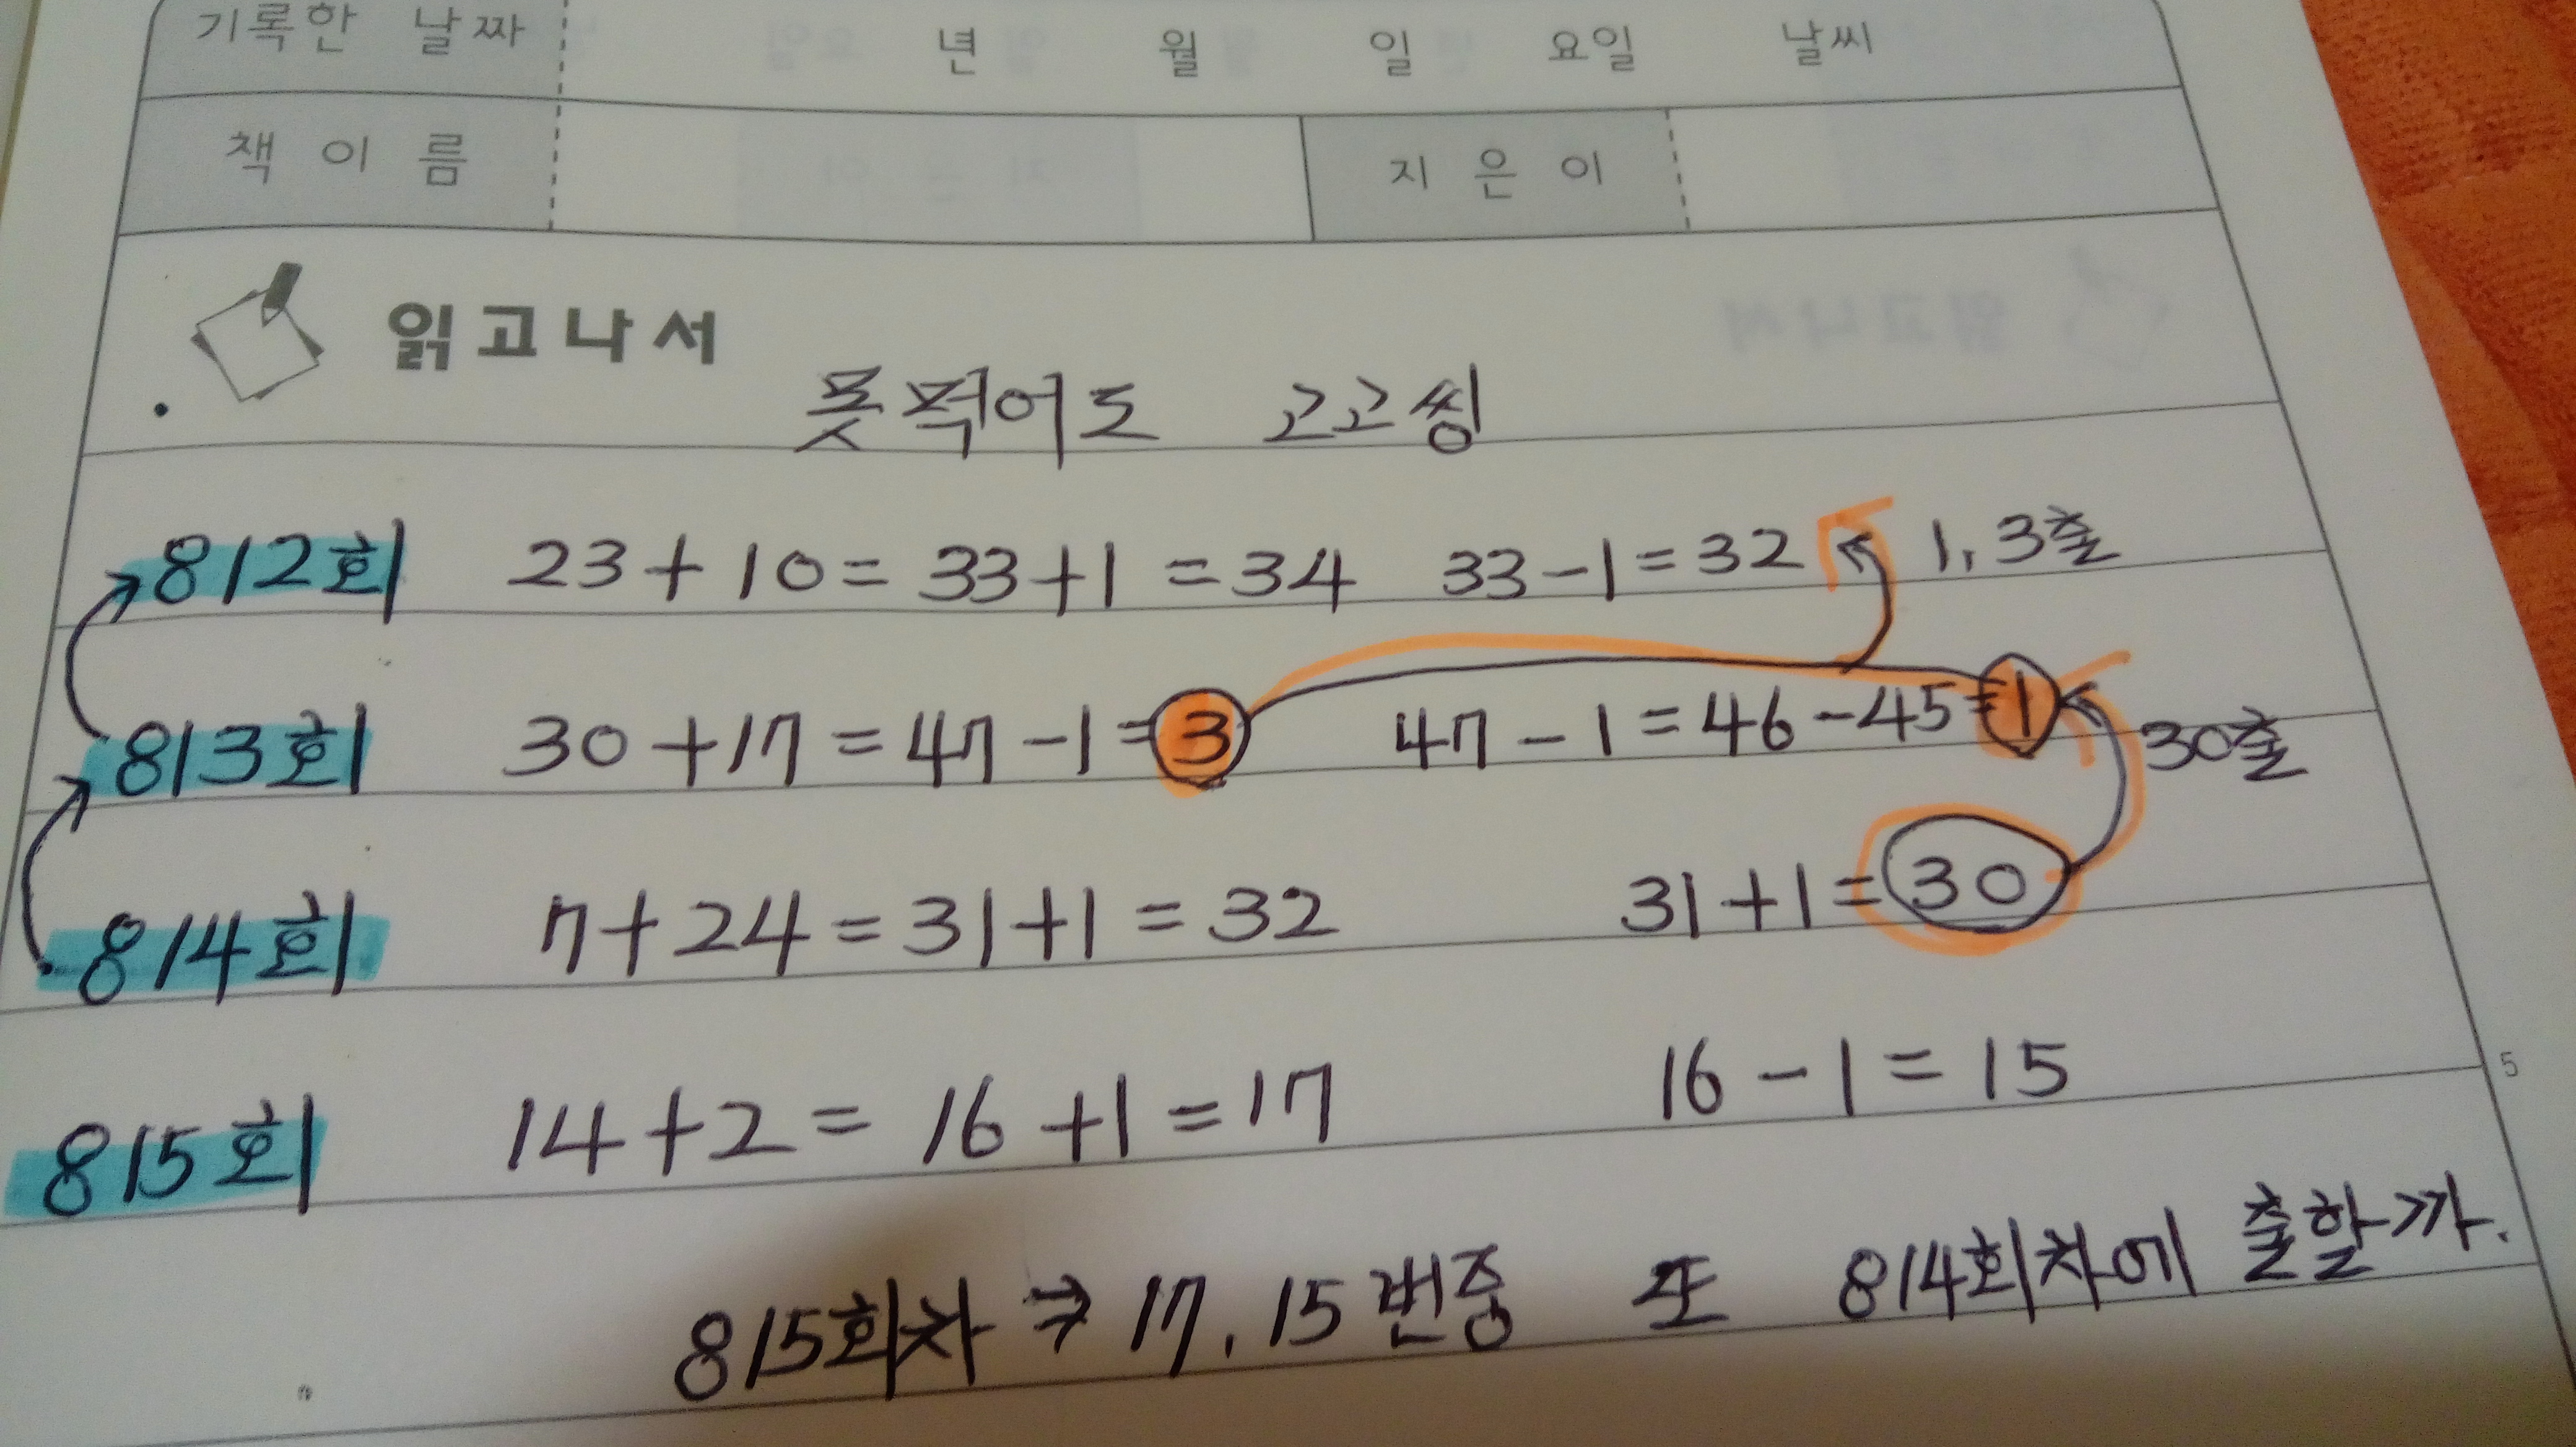 기록한 날짜 년 월 일 요일 날씨
책 이름 지은이
읽고나서
못적어도 고고씽
812회 23+10=33+1=34 33-1=32 1,3출
813회 30+17=47-1=3 47-1=46-45=1 30출
814회 7+24=31+1=32 31+1=30
815회 14+2=16+1=17 16-1=15
5
815회차⇒17.15번중 또 814회차에 출할까.